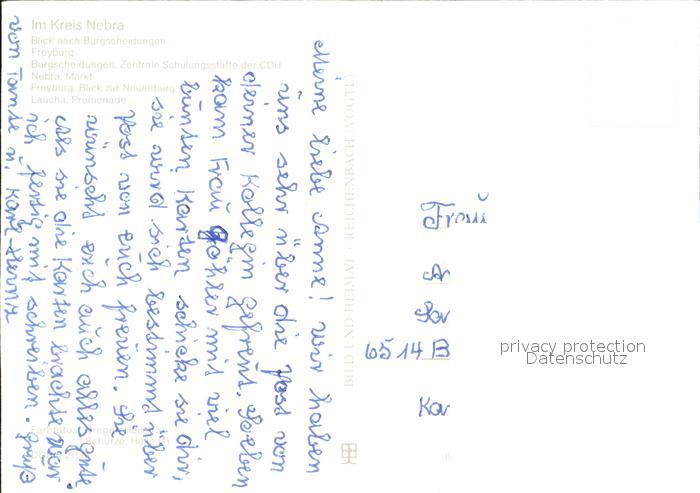 Im Kreis Nebra
Blick nach Burgscheidungen
Freyburg
Burgscheidungen, Zentrale Schulungsstätte der CDU
Nebra, Markt
Freyburg, Blick zur Neuenburg
Laucha, Promenade
Meine liebe Anne! Wir haben
uns sehr über die Post von
deiner Kollegin gefreut. Soeben
kam Frau Göhler mit viel
bunten Karten schicke sie dir,
sie wird sich bestimmt über
Post von euch freuen. Sie
wünscht euch auch alles gute
als sie die Karten brachte war
ich fertig mit schreiben. Grüße
von Tante u. Karl-Heinz
BILD UND HEIMAT REICHENBACH (VOGTL)
Frau
6514 B
privacy protection
Datenschutz